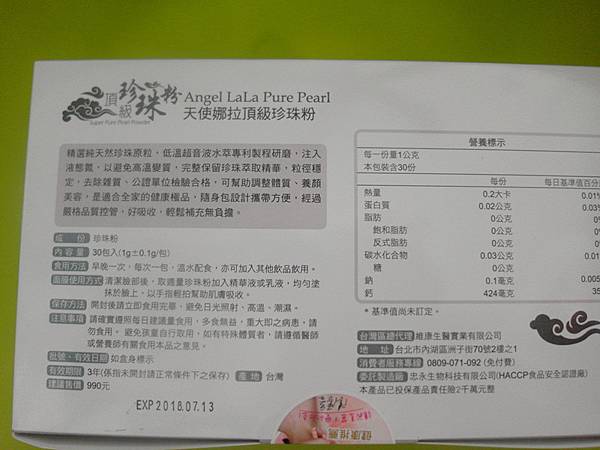 頂級珍珠粉
Super Pure Pearl Powder
Angel LaLa Pure Pearl
天使娜拉頂級珍珠粉
精選純天然珍珠原粒，低溫超音波水萃專利製程研磨，注入
液態氮，以避免高溫變質，完整保留珍珠萃取精華，粒徑穩
定，去除雜質、公證單位檢驗合格，可幫助調整體質、養顏
美容，是適合全家的健康極品，隨身包設計攜帶方便，經過
嚴格品質控管，好吸收，輕鬆補充無負擔。
成份 珍珠粉
內容量 30包入(1g±0.1g/包)
食用方法 早晚一次，每次一包，溫水配食，亦可加入其他飲品飲用。
面膜使用方式 清潔臉部後，取適量珍珠粉加入精華液或乳液，均勻塗
抹於臉上，以手指輕拍幫助肌膚吸收。
保存方法 開封後請立即食用完畢，避免日光照射、高溫、潮濕。
注意事項 請確實遵照每日建議量食用，多食無益，重大即之病患，請
勿食用。 避免孩童自行取用，如有特殊體質者，請遵循醫師
或營養師有關食用本品之意見。
批號、有效日期 如盒身標示
有效期限 3年(係指未開封請正常條件下之保存) 產地 台灣
建議售價 990元
EXP 2018.07.13
營養標示
每一份量1公克
本包裝含30份
每份 每日基準值百分
熱量 0.2大卡 0.01%
蛋白質 0.02公克 0.03%
脂肪 0公克 0%
飽和脂肪 0公克 0%
反式脂肪 0公克
碳水化合物 0.03公克 0.01
糖 0公克
鈉 0.1毫克 0.005
鈣 424毫克 35
* 基準值尚未訂定。
台灣區總代理 維康生醫實業有限公司
地址 台北市內湖區洲子街70號2樓之1
消費者服務專線 0809-071-092 (免付費)
委託製造廠 忠永生物科技有限公司(HACCP食品安全認證廠)
本產品已投保產品責任險2千萬元整
健康推薦